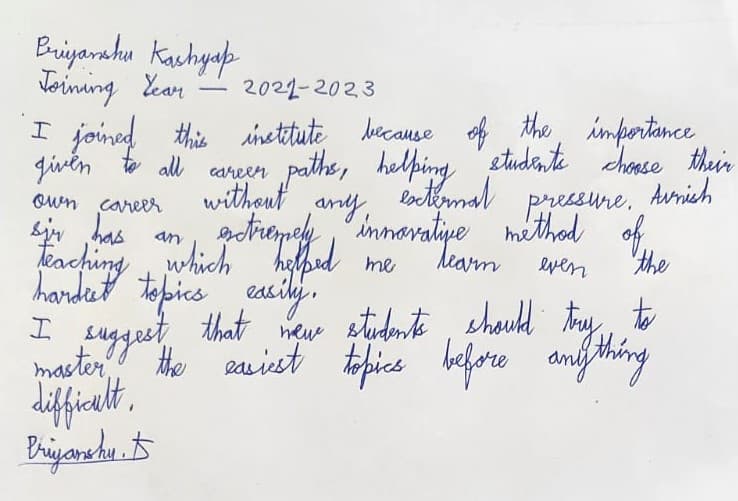 Priyanshu Kashyap
Joining Year — 2021-2023
I joined this institute because of the importance
given to all career paths, helping students choose their
own career without any external pressure. Avnish
sir has an extremely innovative method of
teaching which helped me learn even the
hardest topics easily.
I suggest that new students should try to
master the easiest topics before anything
difficult.
Priyanshu.K